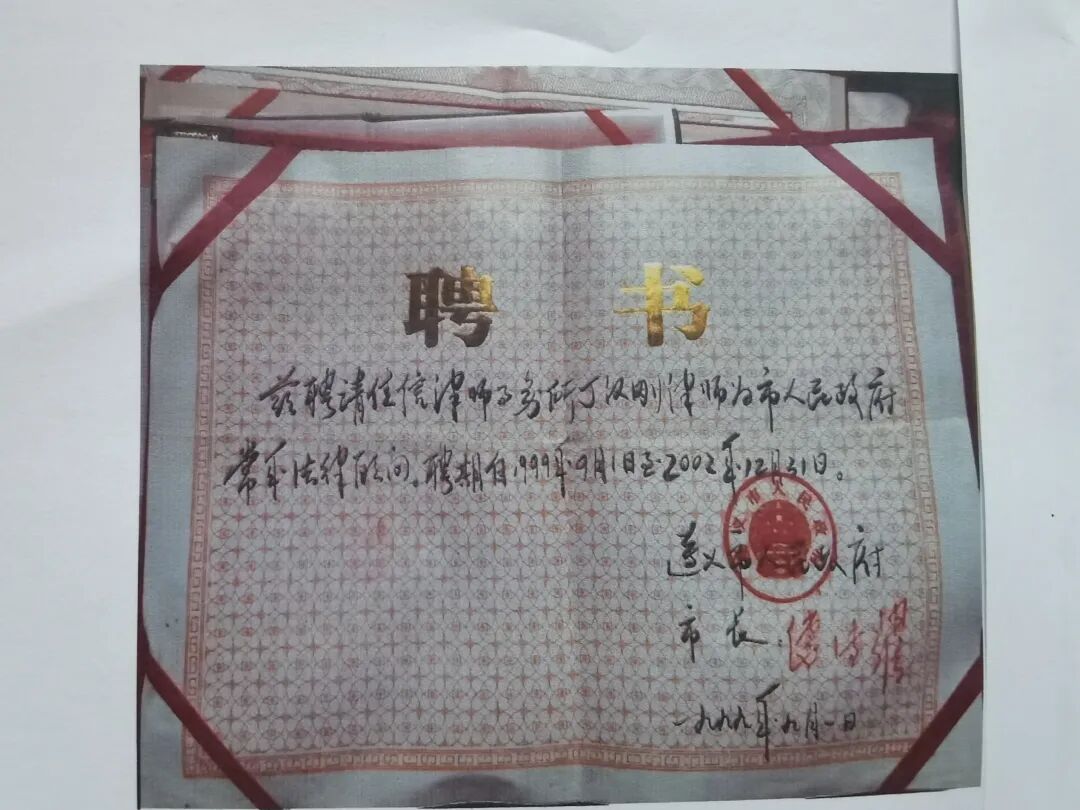 聘 书
兹聘请任信律师事务所丁汉刚律师为市人民政府
常年法律顾问。聘期自1999年9月1日至2002年12月31日。
遵义市人民政府
市长:傅传耀
一九九九年九月一日